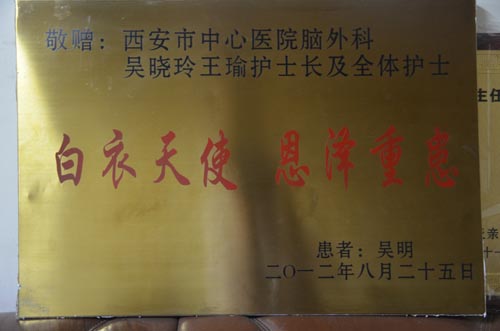 敬赠：西安市中心医院脑外科
吴晓玲王瑜护士长及全体护士
白衣天使 恩泽重惠
患者：吴明
二〇一二年八月二十五日
主任